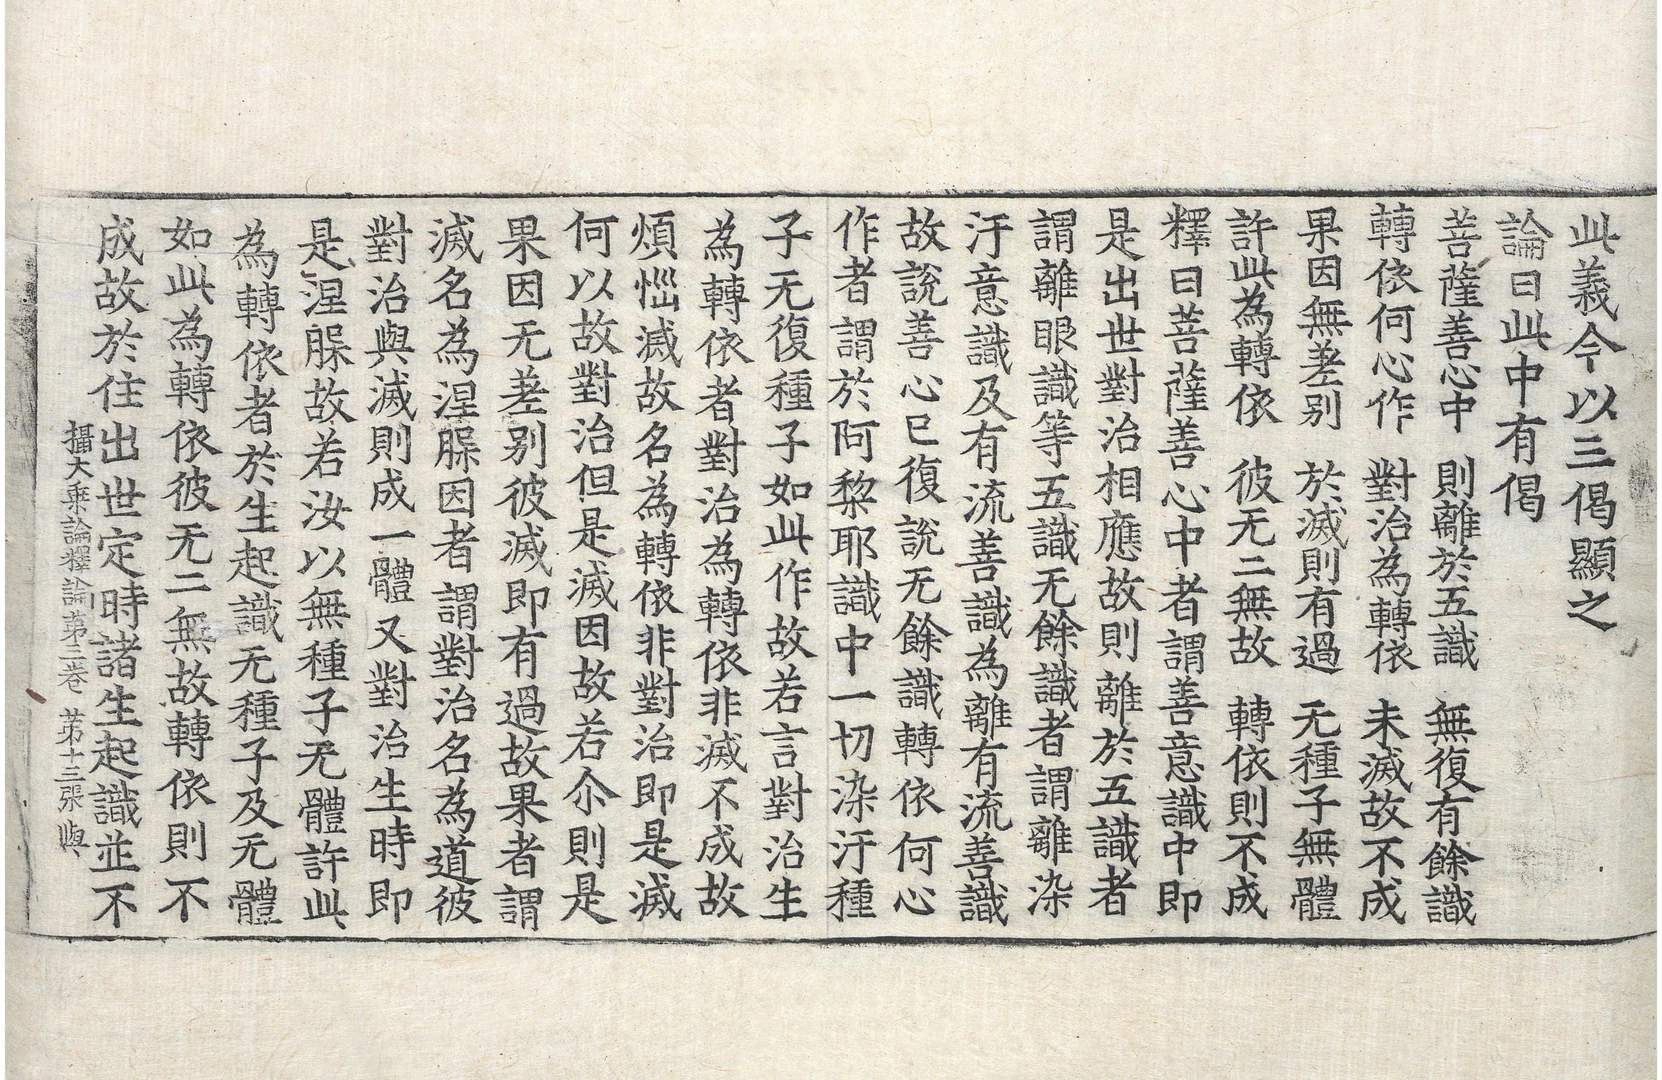 此義今以三偈顯之
論曰此中有偈
菩薩善心中　則離於五識　無復有餘識
轉依何心作　對治為轉依　未滅故不成
果因無差别　於滅則有過　无種子無體
許此為轉依　彼无二無故　轉依則不成
釋曰菩薩善心中者謂善意識中即
是出世對治相應故則離於五識者
謂離眼識等五識无餘識者謂離染
汙意識及有流善識為離有流善識
故說善心已復說无餘識轉依何心
作者謂於阿黎耶識中一切染汙種
子无復種子如此作故若言對治生
為轉依者對治為轉依非滅不成故
煩惱滅故名為轉依非對治即是滅
何以故對治但是滅因故若尒則是
果因无差别彼滅即有過故果者謂
滅名為涅槃因者謂對治名為道彼
對治與滅則成一體又對治生時即
是涅槃故若汝以無種子无體許此
為轉依者於生起識无種子及无體
如此為轉依彼无二無故轉依則不
成故於住出世定時諸生起識並不
攝大乘論釋論第三卷　第十三張　與